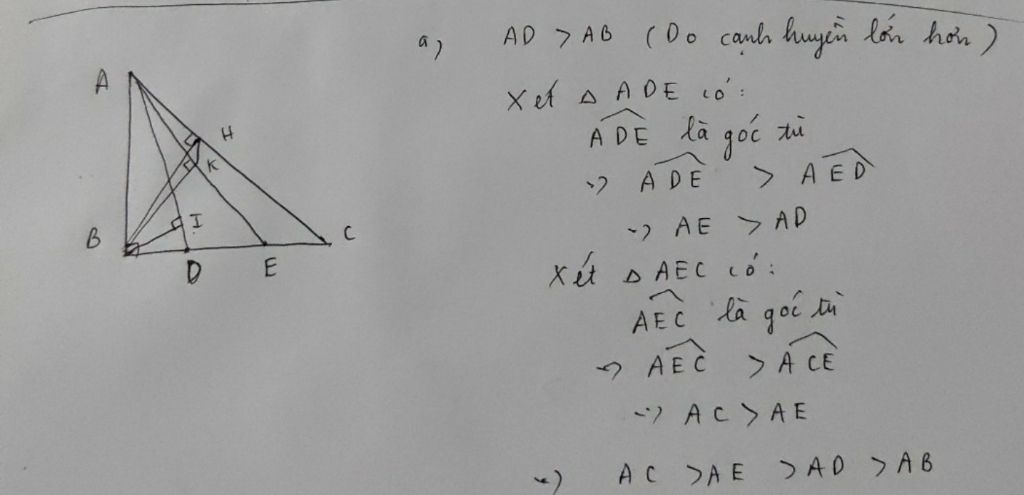 a, AD > AB (Do cạnh huyền lớn hơn)
Xét △ ADE có:
ADE là góc tù
=> ADE > AED
=> AE > AD
Xét △ AEC có:
AEC là góc tù
=> AEC > ACE
=> AC > AE
=> AC > AE > AD > AB
A
H
K
B
I
C
D
E